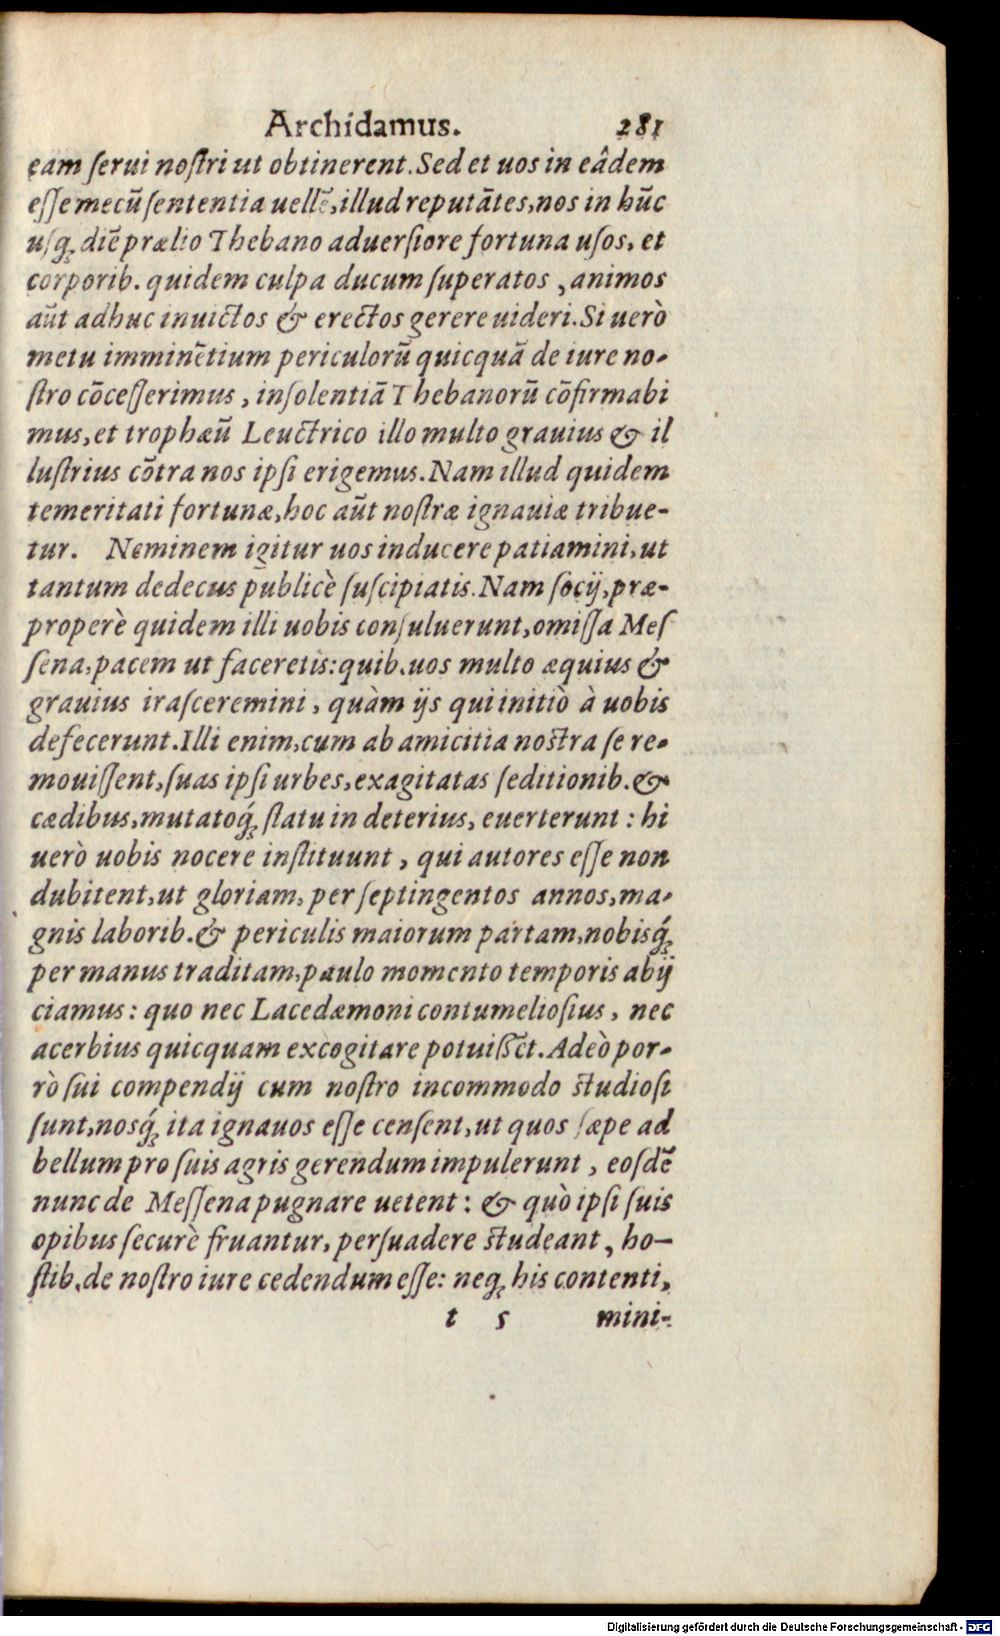 Archidamus. 281
eam ſerui noſtri ut obtinerent. Sed et uos in eâdem
eſſe mecũ ſententia uellẽ, illud reputãtes, nos in hũc
uſq; diẽ prælio Thebano aduerſiore fortuna uſos, et
corporib. quidem culpa ducum ſuperatos, animos
aũt adhuc inuictos & erectos gerere uideri. Si uerò
metu imminẽtium periculorũ quicquã de iure no-
ſtro cõceſſerimus, inſolentiã Thebanorũ cõfirmabi
mus, et trophæũ Leuctrico illo multo grauius & il
luſtrius cõtra nos ipſi erigemus. Nam illud quidem
temeritati fortunæ, hoc aũt noſtræ ignauiæ tribue-
tur. Neminem igitur uos inducere patiamini, ut
tantum dedecus publicè ſuſcipiatis. Nam ſocij, præ-
properè quidem illi uobis conſuluerunt, omiſſa Meſ
ſena, pacem ut faceretis: quib. uos multo æquius &
grauius iraſceremini, quàm ijs qui initiò à uobis
defecerunt. Illi enim, cum ab amicitia noſtra ſe re-
mouiſſent, ſuas ipſi urbes, exagitatas ſeditionib. &
cædibus, mutatoq́; ſtatu in deterius, euerterunt: hi
uerò uobis nocere inſtituunt, qui autores eſſe non
dubitent, ut gloriam, per ſeptingentos annos, ma-
gnis laborib. & periculis maiorum partam, nobisq́;
per manus traditam, paulo momento temporis abij
ciamus: quo nec Lacedæmoni contumelioſius, nec
acerbius quicquam excogitare potuiſſẽt. Adeò por-
rò ſui compendij cum noſtro incommodo ſtudioſi
ſunt, nosq́; ita ignauos eſſe cenſent, ut quos ſæpe ad
bellum pro ſuis agris gerendum impulerunt, eoſdẽ
nunc de Meſſena pugnare uetent: & quò ipſi ſuis
opibus ſecurè fruantur, perſuadere ſtudeant, ho-
ſtib. de noſtro iure cedendum eſſe: neq; his contenti,
t 5 mini-
Digitalisierung gefördert durch die Deutsche Forschungsgemeinschaft - DFG